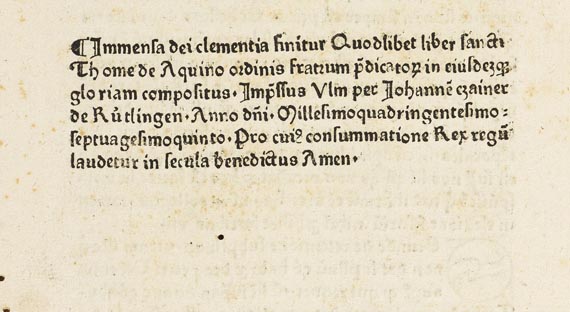 ¶Immensa dei clementia finitur Quodlibet liber sancti
Thome de Aquino ordinis fratrum p̄dicatoꝝ in eiusdemqꝫ
gloriam compositus. Imp̄ssus Ulm per Johannē czainer
de Rütlingen. Anno dñi. Millesimoquadringentesimo=
septuagesimoquinto. Pro cuiꝰ consummatione Rex regū
laudetur in secula benedictus Amen.